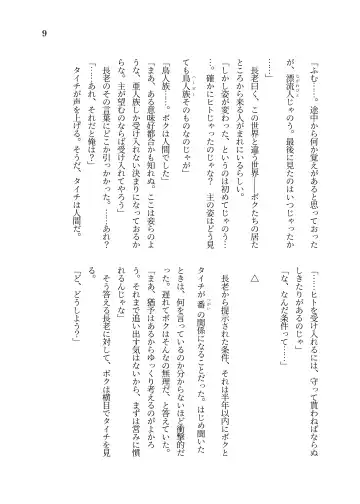 9
「ふむ……。途中から何か覚えがあると思っておった
が、漂流人じゃのう。最後に見たのはいつじゃったか
……」
長老曰く、この世界と違う世界――ボクたちの居た
ところから来る人がまれにいるらしい。
「しかし姿が変わった、というのは初めてじゃのう。
……。確かにヒトじゃったのじゃな？　主の姿はどう見
ても鳥人族そのものなのじゃが」
「鳥人族……。ボクは人間でした」
「まあ、ある意味好都合かも知れぬ。ここは妾らのよ
うな、亜人族しか受け入れない決まりになっておるか
らな。主が望むのならば受け入れてやろう」
長老のその言葉にどこか引っかかった。……あれ？
「……あれ、それだと俺は？」
タイチが声を上げる。そうだ、タイチは人間だ。
「……ヒトを受け入れるには、守って貰わねばならぬ
しきたりがあるのじゃ」
「な、なんだ条件って……」
△
長老から提示された条件、それは半年以内にボクと
タイチが番の関係になることだった。はじめ聞いた
ときは、何を言っているのか分からないほど衝撃的だ
った。遅れてボクはそんなの無理だ、と答えていた。
「まあ、猶予はあるからゆっくり考えるのがよかろ
う。それまで追い出す気はないから、まずは営みに慣
れるんじゃな」
そう答える長老に対して、ボクは横目でタイチを見
る。
「ど、どうしよう？」